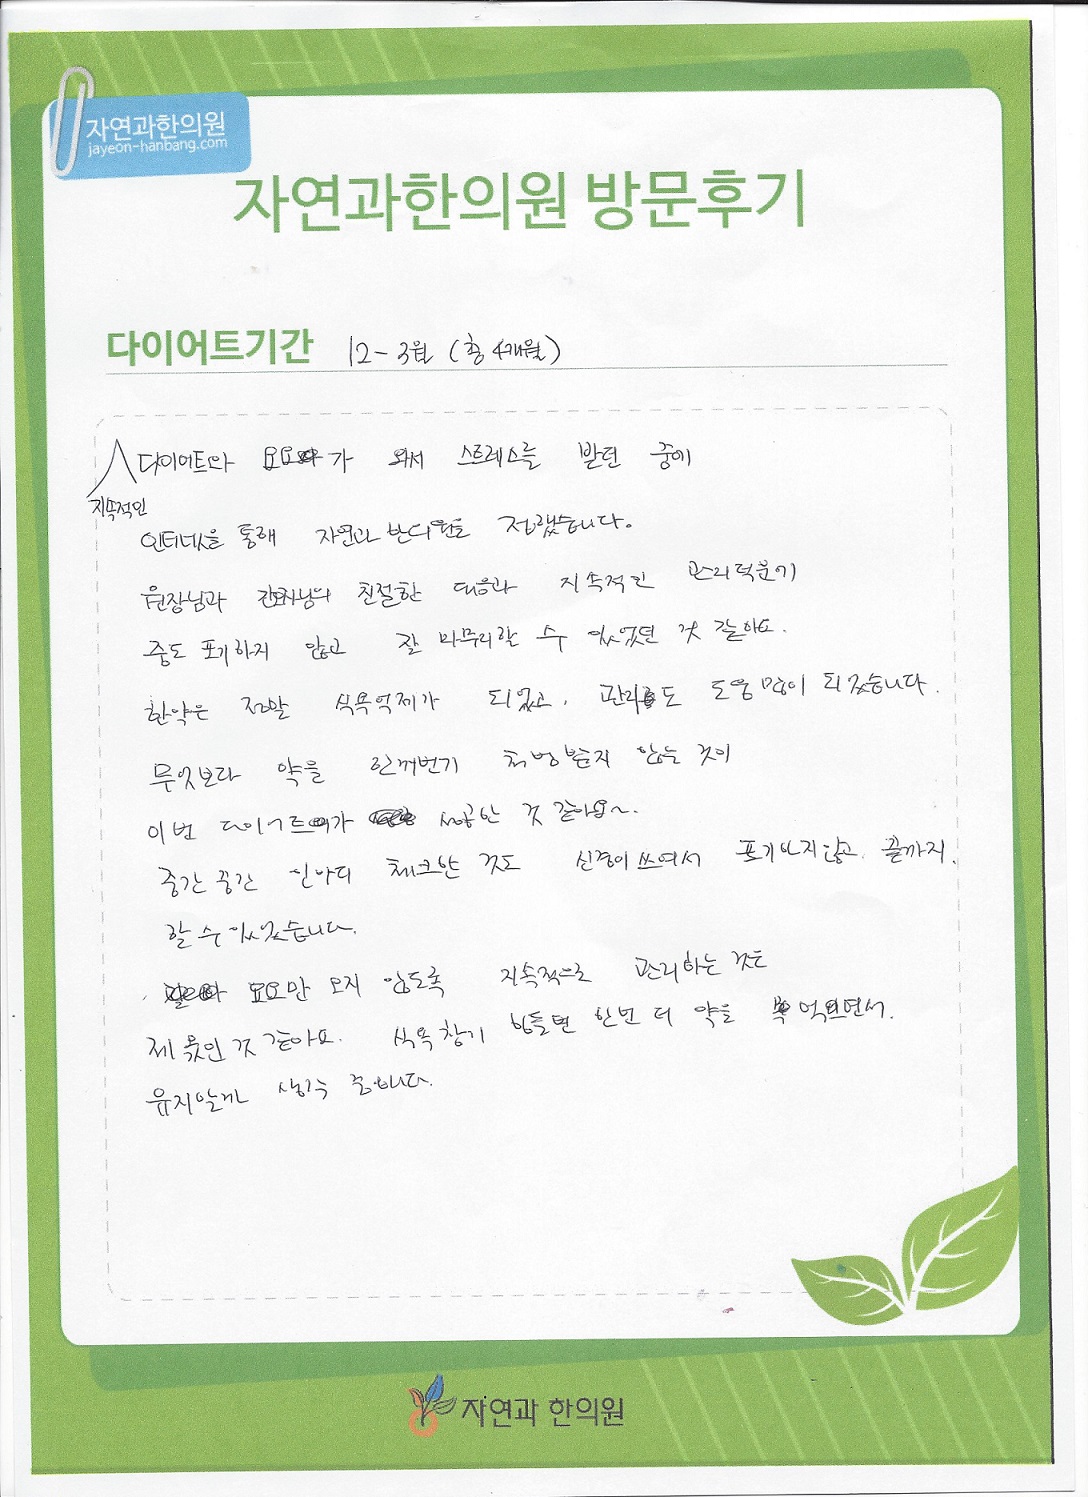 자연과한의원
jayeon-hanbang.com
자연과한의원 방문후기
다이어트기간 12-3월 (총 4개월)
다이어트와 요요가 와서 스트레스를 받던 중에
지속적인
인터넷을 통해 자연과 한의원을 접했습니다.
원장님과 간호사님의 친절한 대응과 지속적인 관리덕분에
중도 포기하지 않고 잘 마무리할 수 있었던 것 같아요.
한약은 정말 식욕억제가 되었고, 관리도 도움 많이 되었습니다.
무엇보다 약을 한꺼번에 처방받지 않는 것이
이번 다이어트가 성공한 것 같아요~.
중간 중간 인바디 체크한 것도 신경이 쓰여서 포기하지 않고, 끝까지.
할 수 있었습니다.
요요만 오지 않도록 지속적으로 관리하는 것은
제 몫인 것 같아요. 식욕 참기 힘들면 한번 더 약을 먹으면서.
유지할까 생각 중입니다.
자연과 한의원